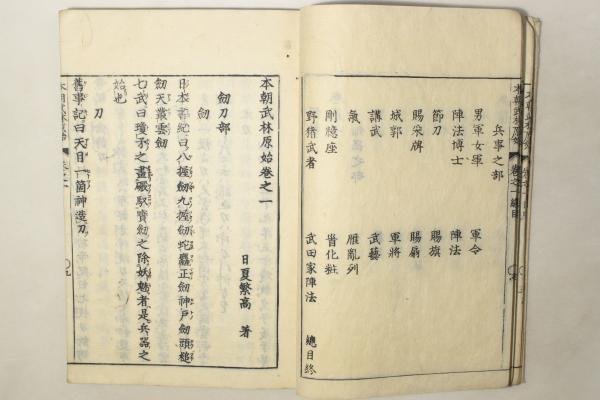 兵事之部
男軍女軍　軍令
陣法博士　陣法
節刀　賜旗
賜宋牌　賜扇
城郭　軍將
講武　武藝
雁亂列
剛臆座
野猪武者　武田家陣法　總目終
本朝武林原始卷之一
日夏繁高　著
劔刀部
劔
日本書紀曰八握劔九握劔蛇麤正劔神戸劔頭槌
劔天叢雲劔
七武曰瓊矛之畫磤馭寶劔之除妖魅者是兵器之
始也
刀
舊事記曰天目一箇神造刀